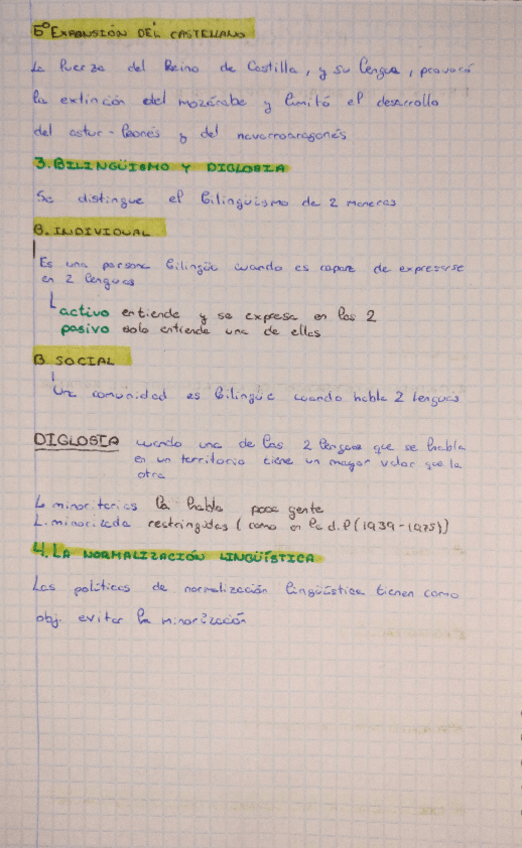 5º EXPANSIÓN DEL CASTELLANO
La fuerza del Reino de Castilla, y su lengua, provocó
la extinción del mozárabe y limitó el desarrollo
del astur-leonés y del navarroaragonés
3. BILINGÜISMO Y DIGLOSIA
Se distingue el bilinguismo de 2 maneras
B. INDIVIDUAL
Es una persona bilingüe cuando es capaz de expresarse
en 2 lenguas
activo entiende y se expresa en las 2
pasivo solo entiende una de ellas
B. SOCIAL
Una comunidad es bilingüe cuando habla 2 lenguas
DIGLOSIA cuando una de las 2 lenguas que se habla
en un territorio tiene un mayor valor que la
otra
L minoritarias la habla poca gente
L. minorizada restringidas (como en la d.f (1939-1975))
4. LA NORMALIZACIÓN LINGÜÍSTICA
Las políticas de normalización lingüística tienen como
obj. evitar la minorización